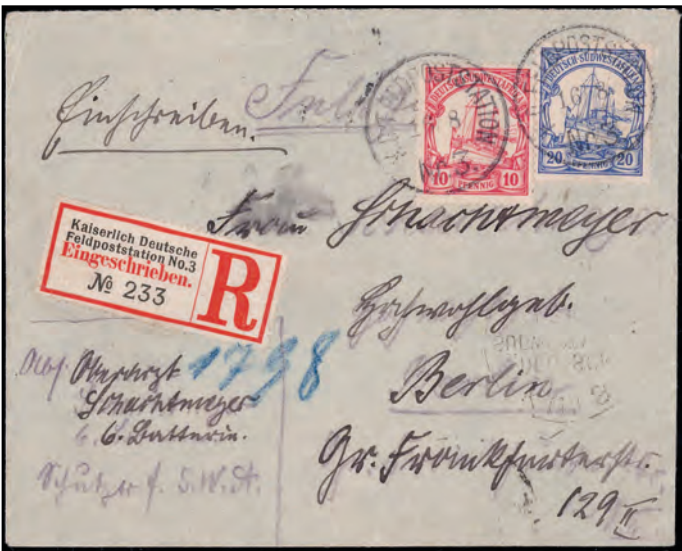 Einschreiben.
K. D. FELDPOSTSTATION
No 3.
DEUTSCH-SÜDWESTAFRIKA
10 PFENNIG 10
DEUTSCH-SÜDWESTAFRIKA
20 PFENNIG 20
Kaiserlich Deutsche
Feldpoststation No.3
Eingeschrieben.
№ 233
R
Frau Schachtmeyer
Hochwohlgeb.
Berlin
Gr. Frankfurterstr.
129 II
1798
Abs. Oberarzt
Schachtmeyer
6. Batterie.
Schutztr. f. S.W.A.